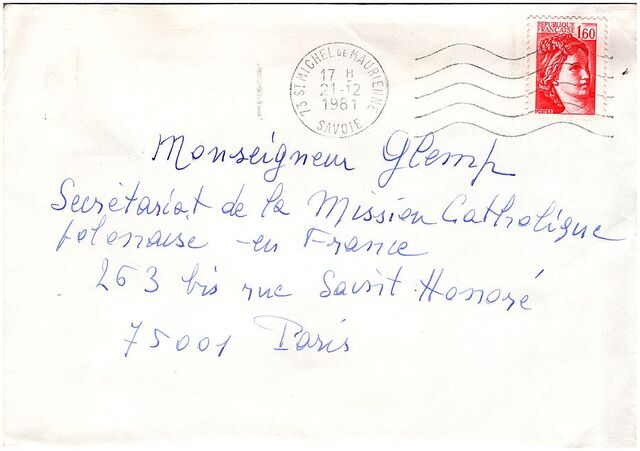 REPUBLIQUE
FRANÇAISE 1,60
POSTES
73 ST MICHEL DE MAURIENNE
17 H
21-12
1981
SAVOIE
Monseigneur Glemp
Secrétariat de la Mission Catholique
polonaise en France
263 bis rue Saint Honoré
75001 Paris